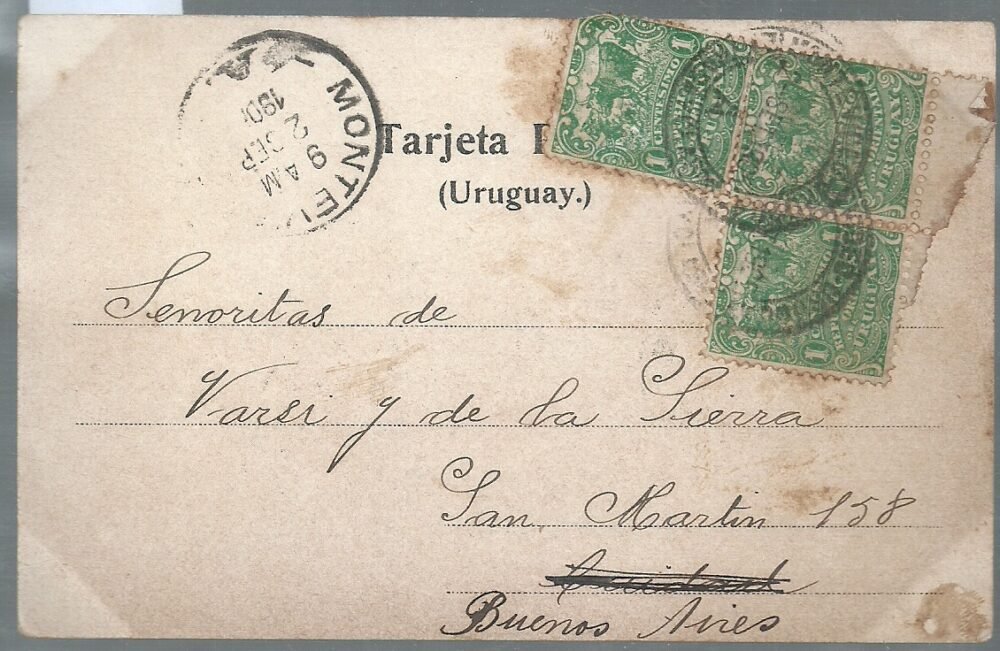 MONTEV
9 AM
2 SEP
190
Tarjeta
(Uruguay.)
1 1
1
URUGUAY
1
URUGUAY
Senoritas de
Varsi y de la Sierra
San Martin 158
Buenos Aires